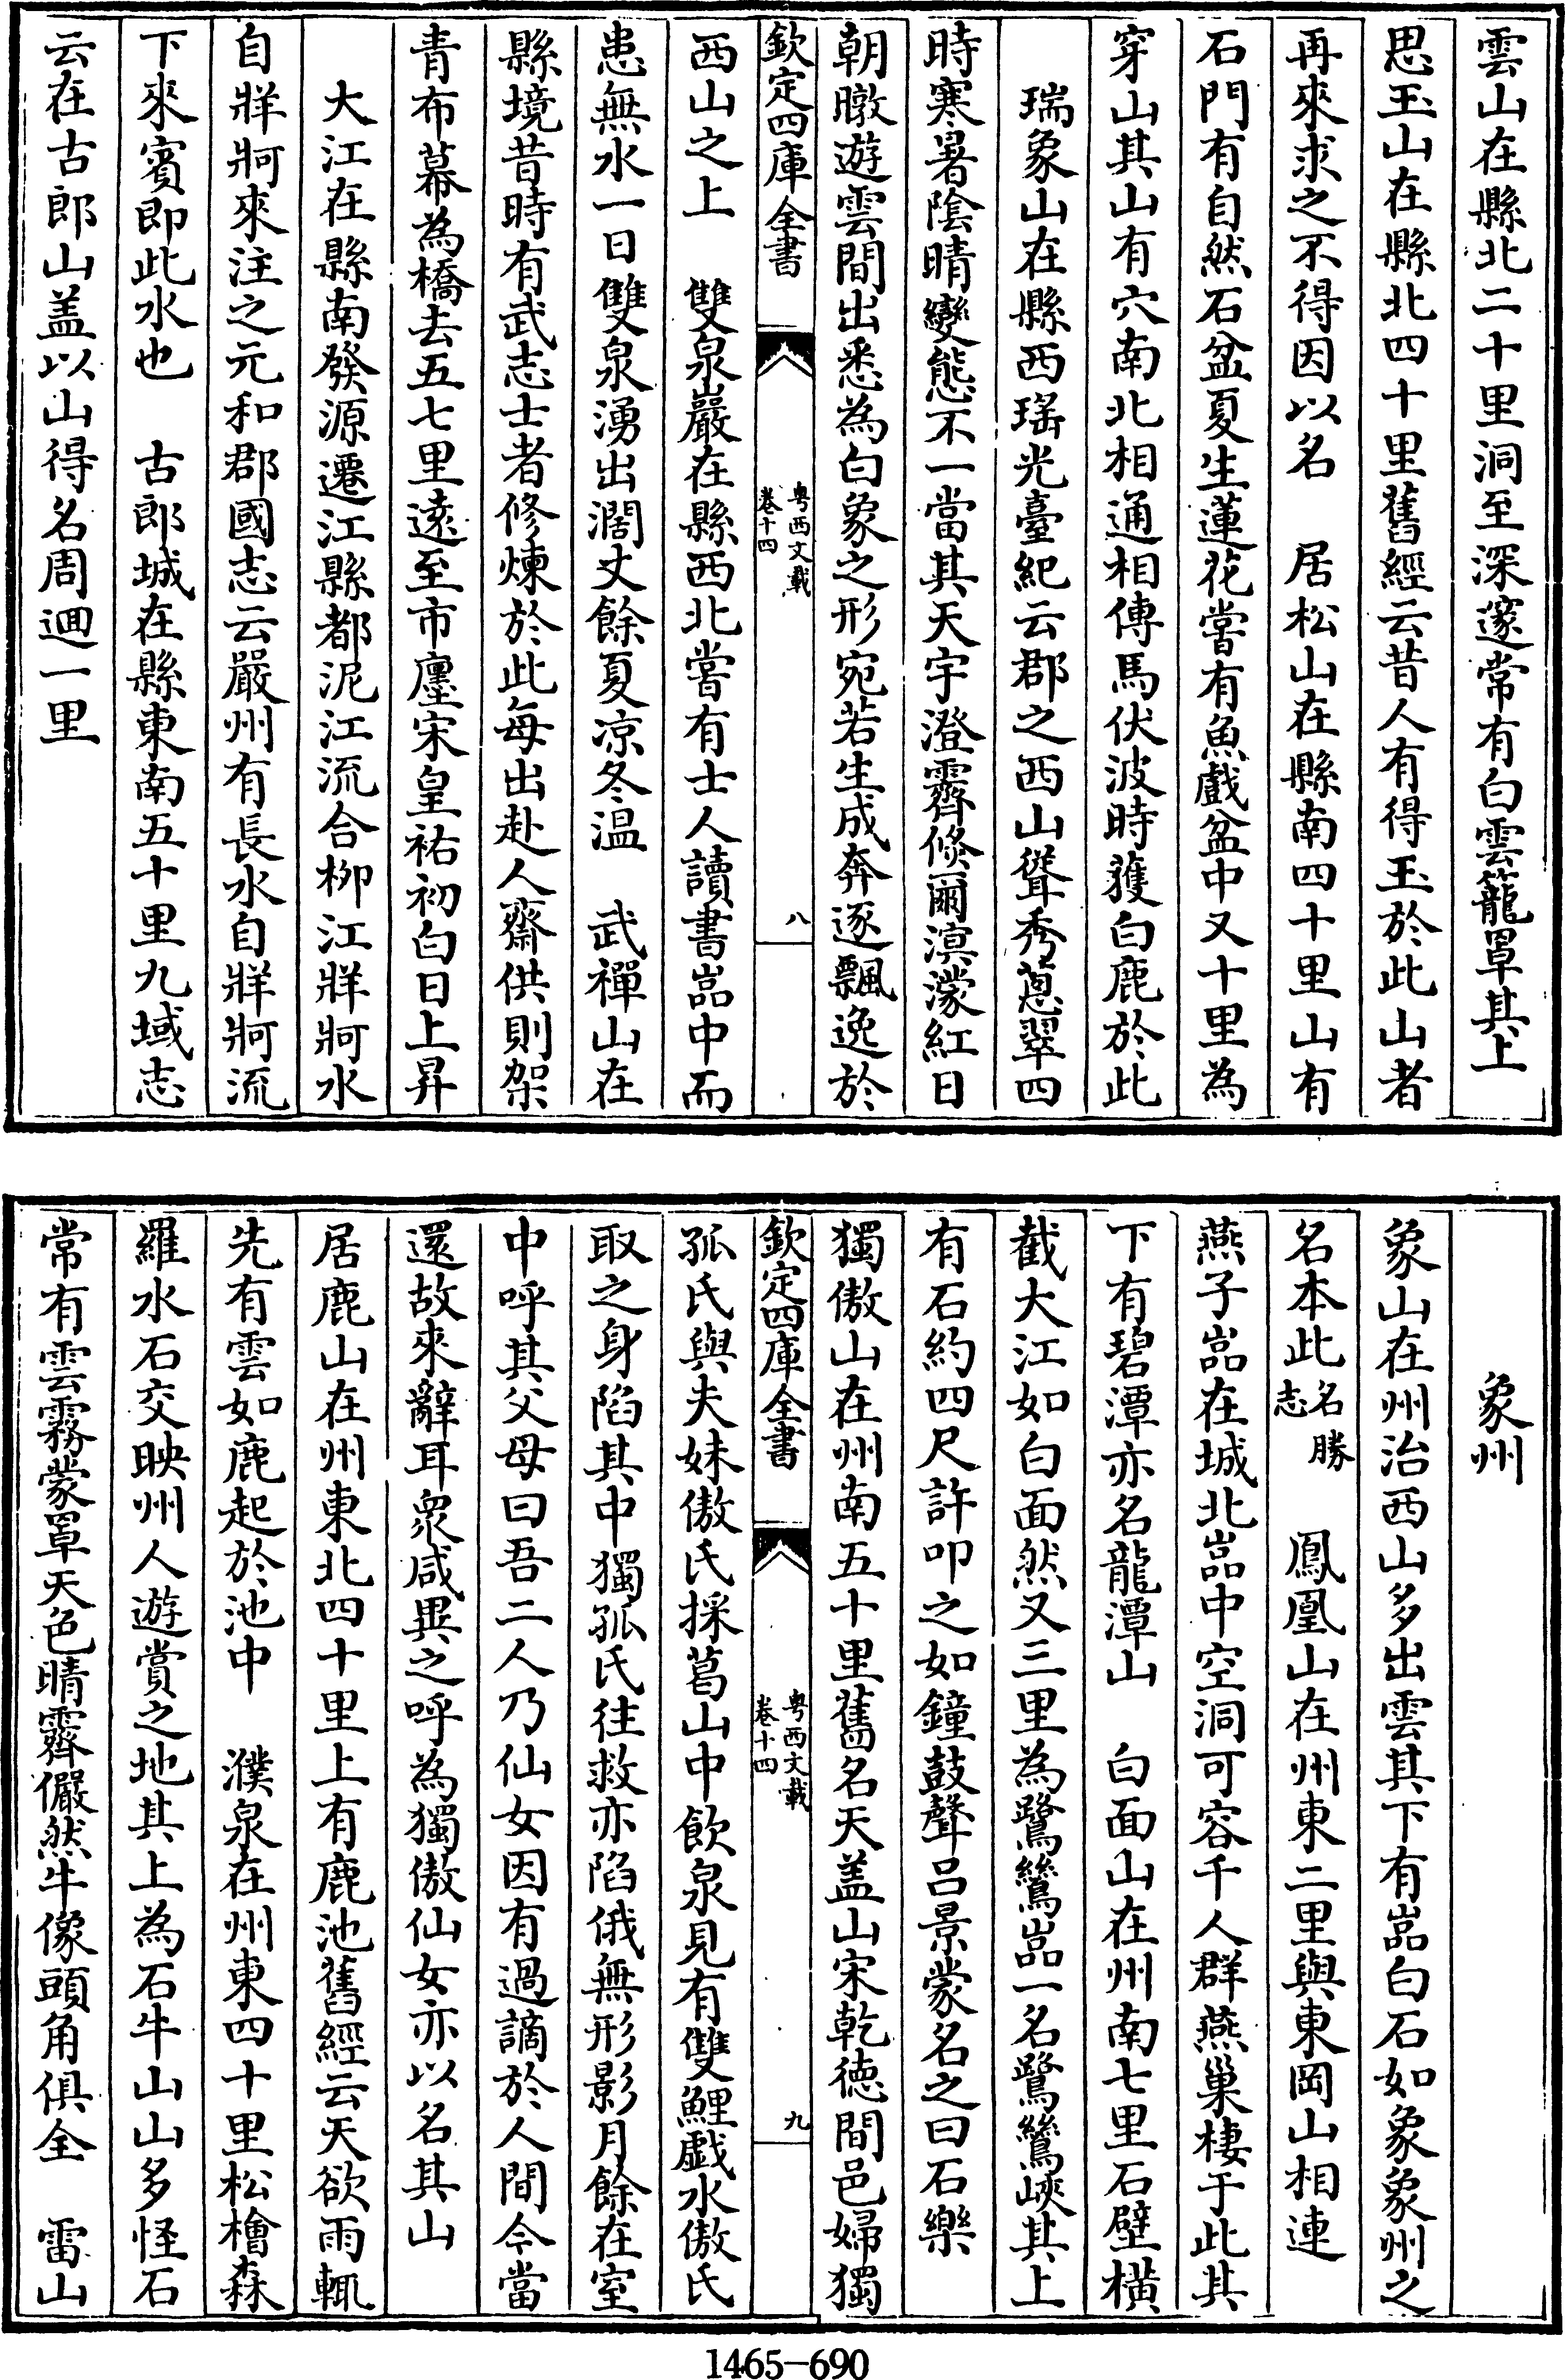 雲山在縣北二十里洞至深邃常有白雲籠罩其上
思玉山在縣北四十里舊經云昔人有得玉於此山者
再來求之不得因以名　居松山在縣南四十里山有
石門有自然石盆夏生蓮花嘗有魚戲盆中又十里為
穿山其山有穴南北相通相傳馬伏波時獲白鹿於此
瑞象山在縣西瑤光臺紀云郡之西山聳秀蔥翠四
時寒暑陰晴變態不一當其天宇澄霽倐爾溟濛紅日
朝暾遊雲間出悉為白象之形宛若生成奔逐飄逸於
欽定四庫全書
粤西文載
卷十四
八
西山之上　雙泉巖在縣西北嘗有士人讀書嵓中而
患無水一日雙泉湧出濶丈餘夏凉冬温　武禪山在
縣境昔時有武志士者修煉於此每出赴人齋供則架
青布幕為橋去五七里遠至市廛宋皇祐初白日上昇
大江在縣南發源遷江縣都泥江流合柳江牂牁水
自牂牁來注之元和郡國志云嚴州有長水自牂牁流
下來賓即此水也　古郎城在縣東南五十里九域志
云在古郎山盖以山得名周迴一里
象州
象山在州治西山多出雲其下有嵓白石如象象州之
名本此名勝志　鳳凰山在州東二里與東岡山相連
燕子嵓在城北嵓中空洞可容千人群燕巢棲于此其
下有碧潭亦名龍潭山　白面山在州南七里石壁橫
截大江如白面然又三里為鷺鷥嵓一名鷺鷥峽其上
有石約四尺許叩之如鐘鼓聲吕景蒙名之曰石樂
獨傲山在州南五十里舊名天盖山宋乾徳間邑婦獨
欽定四庫全書
粤西文載
卷十四
九
孤氏與夫妹傲氏採葛山中飲泉見有雙鯉戯水傲氏
取之身陷其中獨孤氏往救亦陷俄無形影月餘在室
中呼其父母曰吾二人乃仙女因有過謫於人間今當
還故來辭耳衆咸異之呼為獨傲仙女亦以名其山
居鹿山在州東北四十里上有鹿池舊經云天欲雨輒
先有雲如鹿起於池中　濮泉在州東四十里松檜森
羅水石交映州人遊賞之地其上為石牛山山多怪石
常有雲霧蒙罩天色晴霽儼然牛像頭角俱全　雷山
1465-690